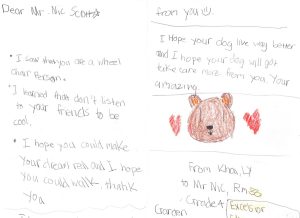 Dear Mr. Nic Scott
• I saw that you are a wheel
chair person.
• I learned that don't listen
to your friends to be
cool.
• I hope you could make
your dream real and I hope
you could walk, thank
you
from you
I Hope your dog live very better
and I hope your dog will get
take care more from you. Your
amazing.
From Khoa, Ly
to Mr Nic, Rm
Grade 4
Excelsior